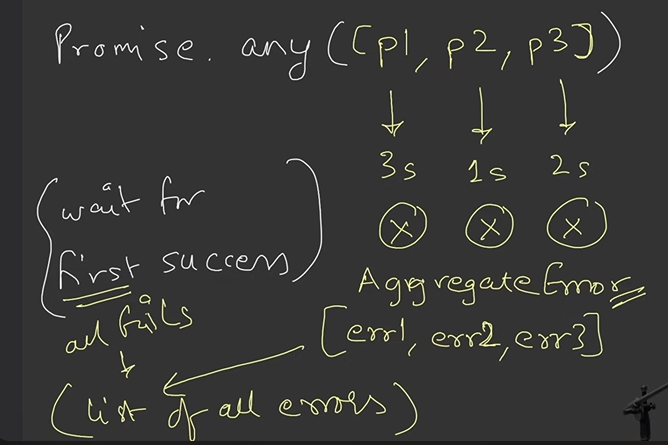 Promise. any([p1, p2, p3])
3s 1s 2s
X X X
(wait for
first success)
Aggregate Error
[err1, err2, err3]
all fails
(list of all errors)